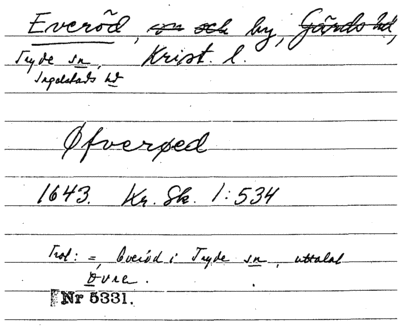 Everöd, sn och by, Gärds hd,
Tryde sn, Krist. l.
Ingelstads hd
Øfverøed
1643. Kr. Sk. 1:534
Trol: =, Everöd i Tryde sn, uttalat
Øvre.
Nr 5331.